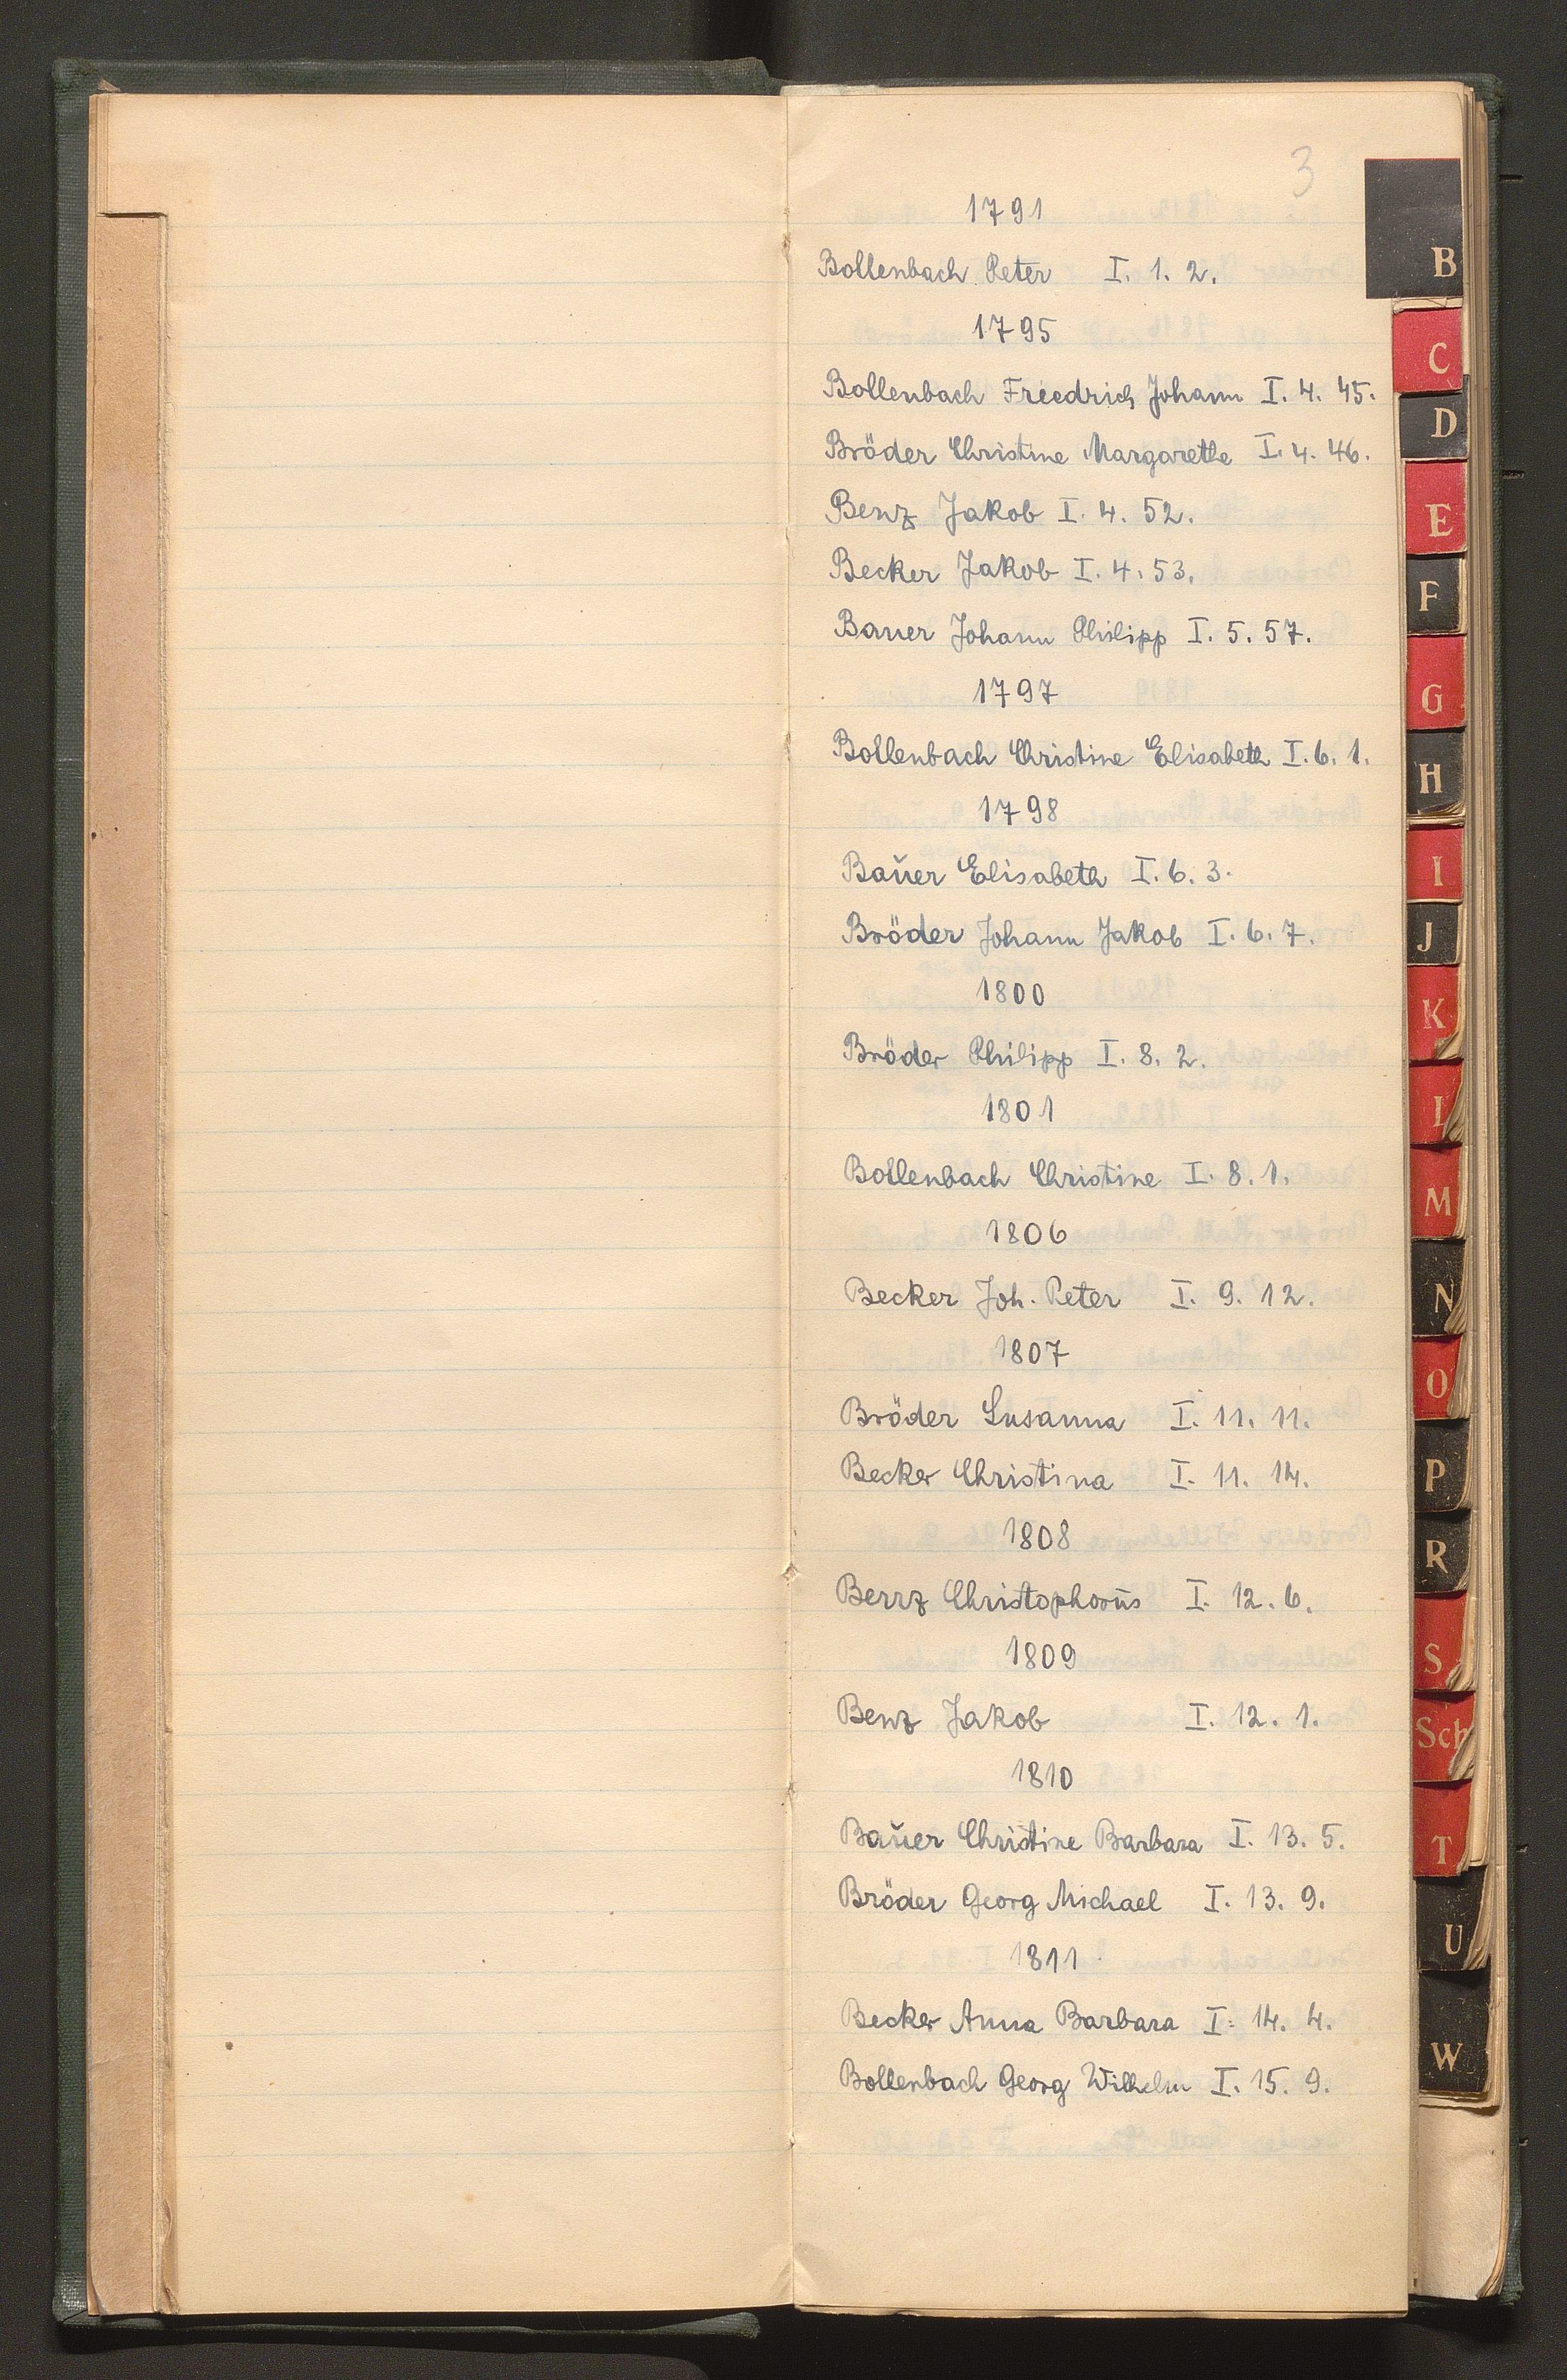 3
1791
Bollenbach Peter I. 1. 2.
1795
Bollenbach Friedrich Johann I. 4. 45.
Bröder Christine Margarethe I. 4. 46.
Benz Jakob I. 4. 52.
Becker Jakob I. 4. 53.
Bauer Johann Philipp I. 5. 57.
1797
Bollenbach Christine Elisabeth I. 6. 1.
1798
Baŭer Elisabeth I. 6. 3.
Bröder Johann Jakob I. 6. 7.
1800
Bröder Philipp I. 8. 2.
1801
Bollenbach Christine I. 8. 1.
1806
Becker Joh. Peter I. 9. 12.
1807
Bröder Susanna I. 11. 11.
Becker Christina I. 11. 14.
1808
Berrz Christophorŭs I. 12. 6.
1809
Benz Jakob I. 12. 1.
1810
Baŭer Christine Barbara I. 13. 5.
Bröder Georg Michael I. 13. 9.
1811
Becker Anna Barbara I. 14. 4.
Bollenbach Georg Wilhelm I. 15. 9.
B
C
D
E
F
G
H
I
J
K
L
M
N
O
P
R
S
Sch
T
U
W